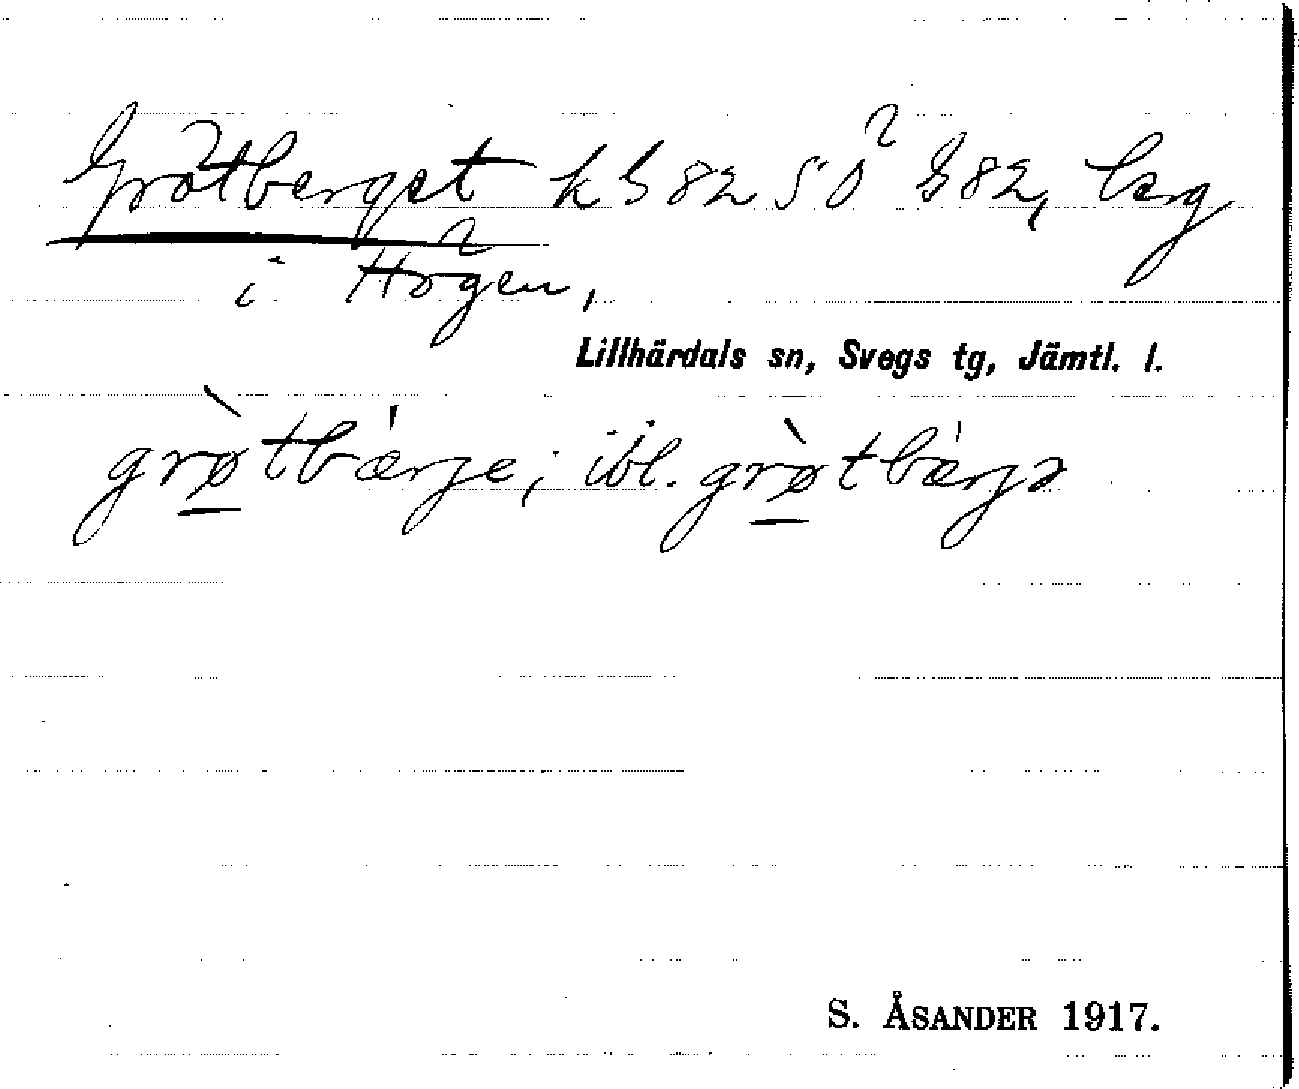 Grötberget kb 82 SÖ G 82, berg
i Högen,
Lillhärdals sn, Svegs tg, Jämtl. l.
grø̀tbærje; ibl. grø̀tbærjə
S. ÅSANDER 1917.